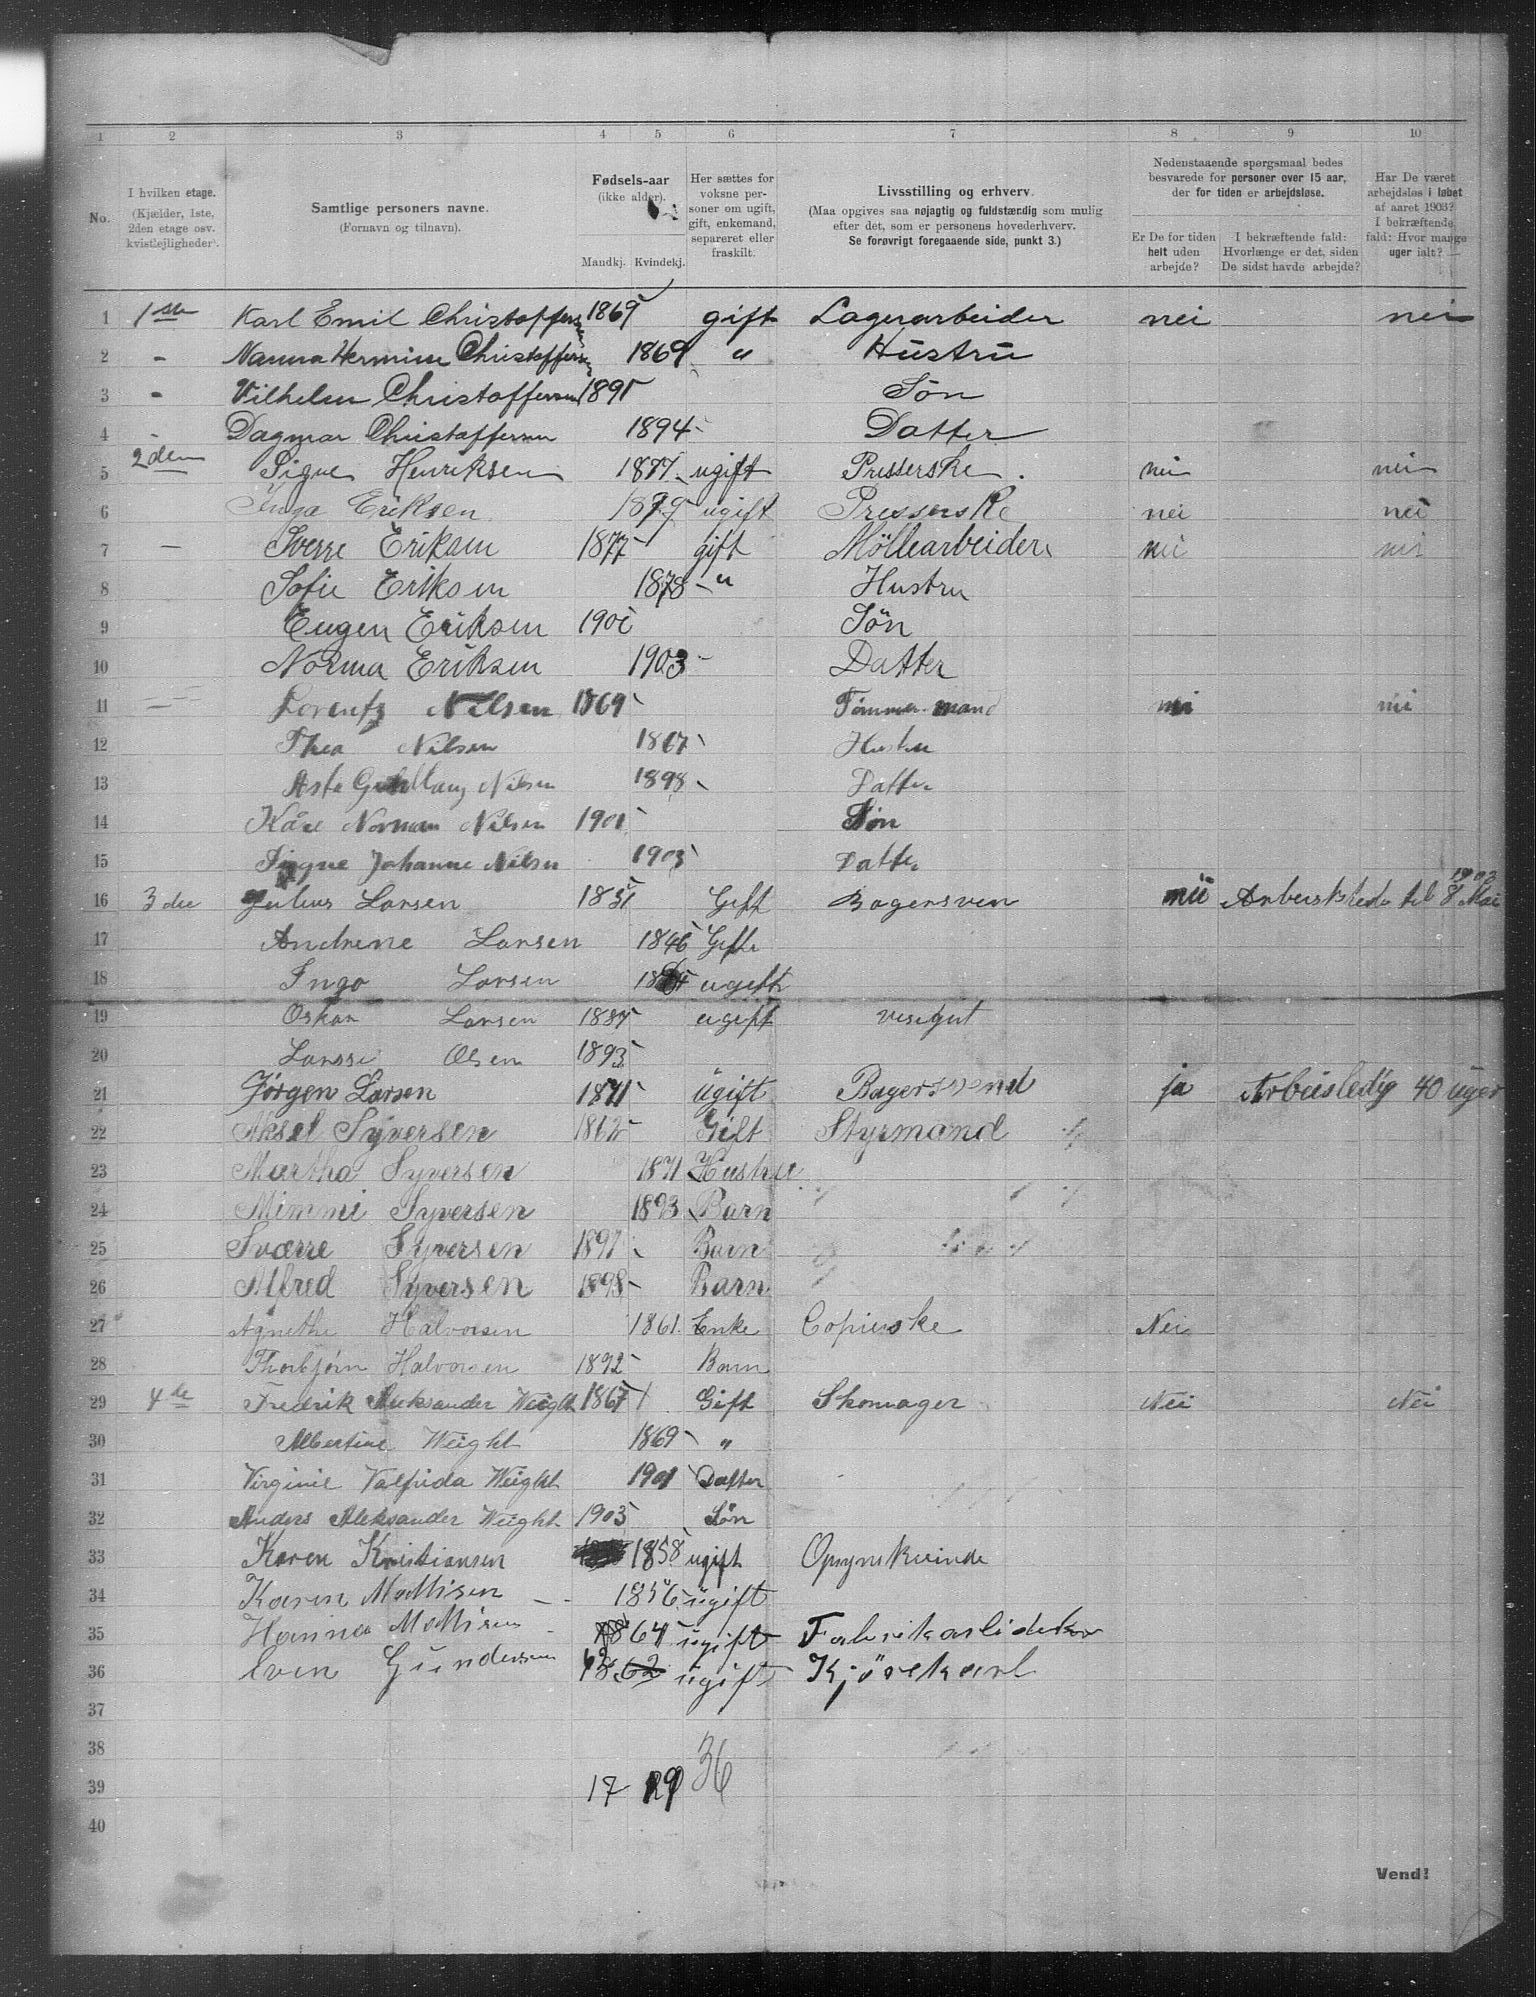 1 2 3 4 5 6 7 8 9 10
No.
I hvilken etage.
(Kjælder, 1ste, 2den etage osv. kvistlejligheder).
Samtlige personers navne.
(Fornavn og tilnavn).
Fødsels-aar
(ikke alder).
Mandkj. Kvindekj.
Her sættes for voksne personer om ugift, gift, enkemand, separeret eller fraskilt.
Livsstilling og erhverv.
(Maa opgives saa nøjagtig og fuldstærdig som mulig efter det, som er personens hovederhverv.
Se forøvrigt foregaaende side, punkt 3.)
Nedenstaaende spørgsmaal bedes besvarede for personer over 15 aar, der for tiden er arbejdsløse.
Er De for tiden helt uden arbejde?
I bekræftende fald: Hvorlænge er det, siden De sidst havde arbejde?
Har De været arbejdsløs i løbet af aaret 1903? I bekræftende fald: Hvor mange uger ialt?
1 1ste Karl Emil Christoffersen 1869 gift Lagerarbeider nei nei
2 - Nanna Hermine Christoffersen 1869 " Hustru
3 - Vilhelm Christoffersen 1891 Søn
4 - Dagmar Christoffersen 1894 Datter
5 2den Signe Henriksen 1877 ugift Presserske nei nei
6 Inga Eriksen 1879 ugift Presserske nei nei
7 — Sverre Eriksen 1877 gift Möllearbeider nei nei
8 Sofie Eriksen 1878 " Hustru
9 Eugen Eriksen Søn
10 Norma Eriksen 1903 Datter
11 Lorentz Nilsen 1869 Tømmermand nei nei
12 Thea Nilsen 1867 Hustru
13 Asta Nilsen 1898 Datter
14 Kåre Norman Nilsen 1901 Søn
15 Signe Johanne Nilsen 1903 Datter
16 3die Julius Larsen 1851 Gift Bagersven nei Arbeidsledi til 8 Mai 1903
17 Andrine Larsen 1846 Gift
18 Inga Larsen ugift
19 Oskar Larsen 1887 ugift visergut
20 Olsen 1893
21 Jørgen Larsen 1871 ugift Bagersvend ja Arbeisledig 40 uger
22 Aksel Syversen 1862 Gift Styrmand
23 Martha Syversen 1871 Hustru
24 Mimmi Syversen 1893 Barn
25 Sværre Syversen 1897 Barn
26 Alfred Syversen 1898 Barn
27 Agnethe Halvorsen 1861 Enke Copierske Nei
28 Thorbjørn Halvorsen 1892 Barn
29 4de Fredrik Aleksander Weight 1867 Gift Skomager Nei Nei
30 Albertine Weight 1869 "
31 Virginie Valfrida Weight 1901 Datter
32 Anders Aleksander Weight 1903 Søn
33 Karen Kristiansen 1858 ugift Opsynskvinde
34 Karen Mathisen 1856 ugift
35 Hanna Mathisen 1864 ugift Fabrikarbiderske
36 Even Gundersen 1862 ugift Kjørekarl
37
38
39 17 19 36
40
Vend!